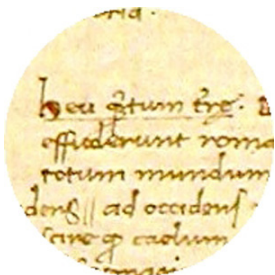 heu q̄tum t̄re.
effuderunt roma
totum mundum
dens || ad occidens
scire q̄ caelum